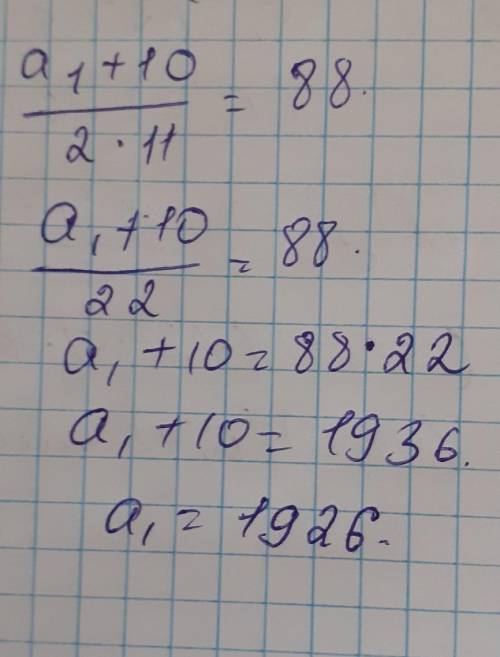 a₁+10
/ 2·11 = 88.
a₁+10
/ 22 = 88.
a₁+10=88·22
a₁+10=1936.
a₁=1926.